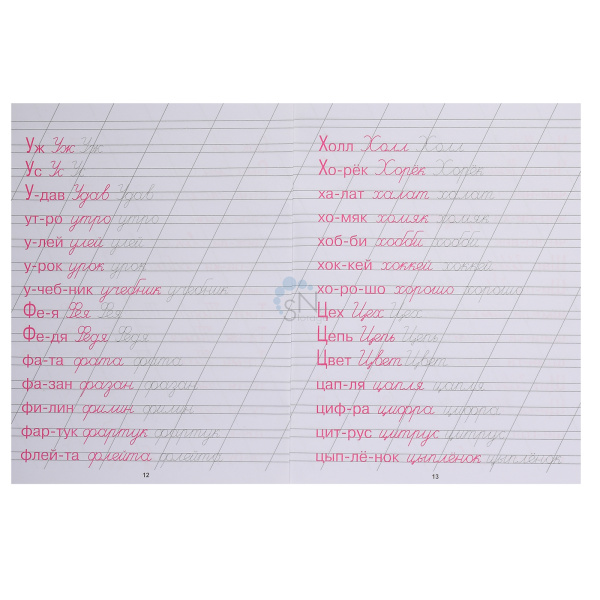 Уж Уж Уж
Ус Ус Ус
У-дав Удав Удав
ут-ро утро утро
у-лей улей улей
у-рок урок урок
у-чеб-ник учебник учебник
Фе-я Фея Фея
Фе-дя Федя Федя
фа-та фата фата
фа-зан фазан фазан
фи-лин филин филин
фар-тук фартук фартук
флей-та флейта флейта
12
Холл Холл Холл
Хо-рёк Хорёк Хорёк
ха-лат халат халат
хо-мяк хомяк хомяк
хоб-би хобби хобби
хок-кей хоккей хоккей
хо-ро-шо хорошо хорошо
Цех Цех Цех
Цепь Цепь Цепь
Цвет Цвет Цвет
цап-ля цапля цапля
циф-ра цифра цифра
цит-рус цитрус цитрус
цып-лё-нок цыплёнок цыплёнок
13
SN